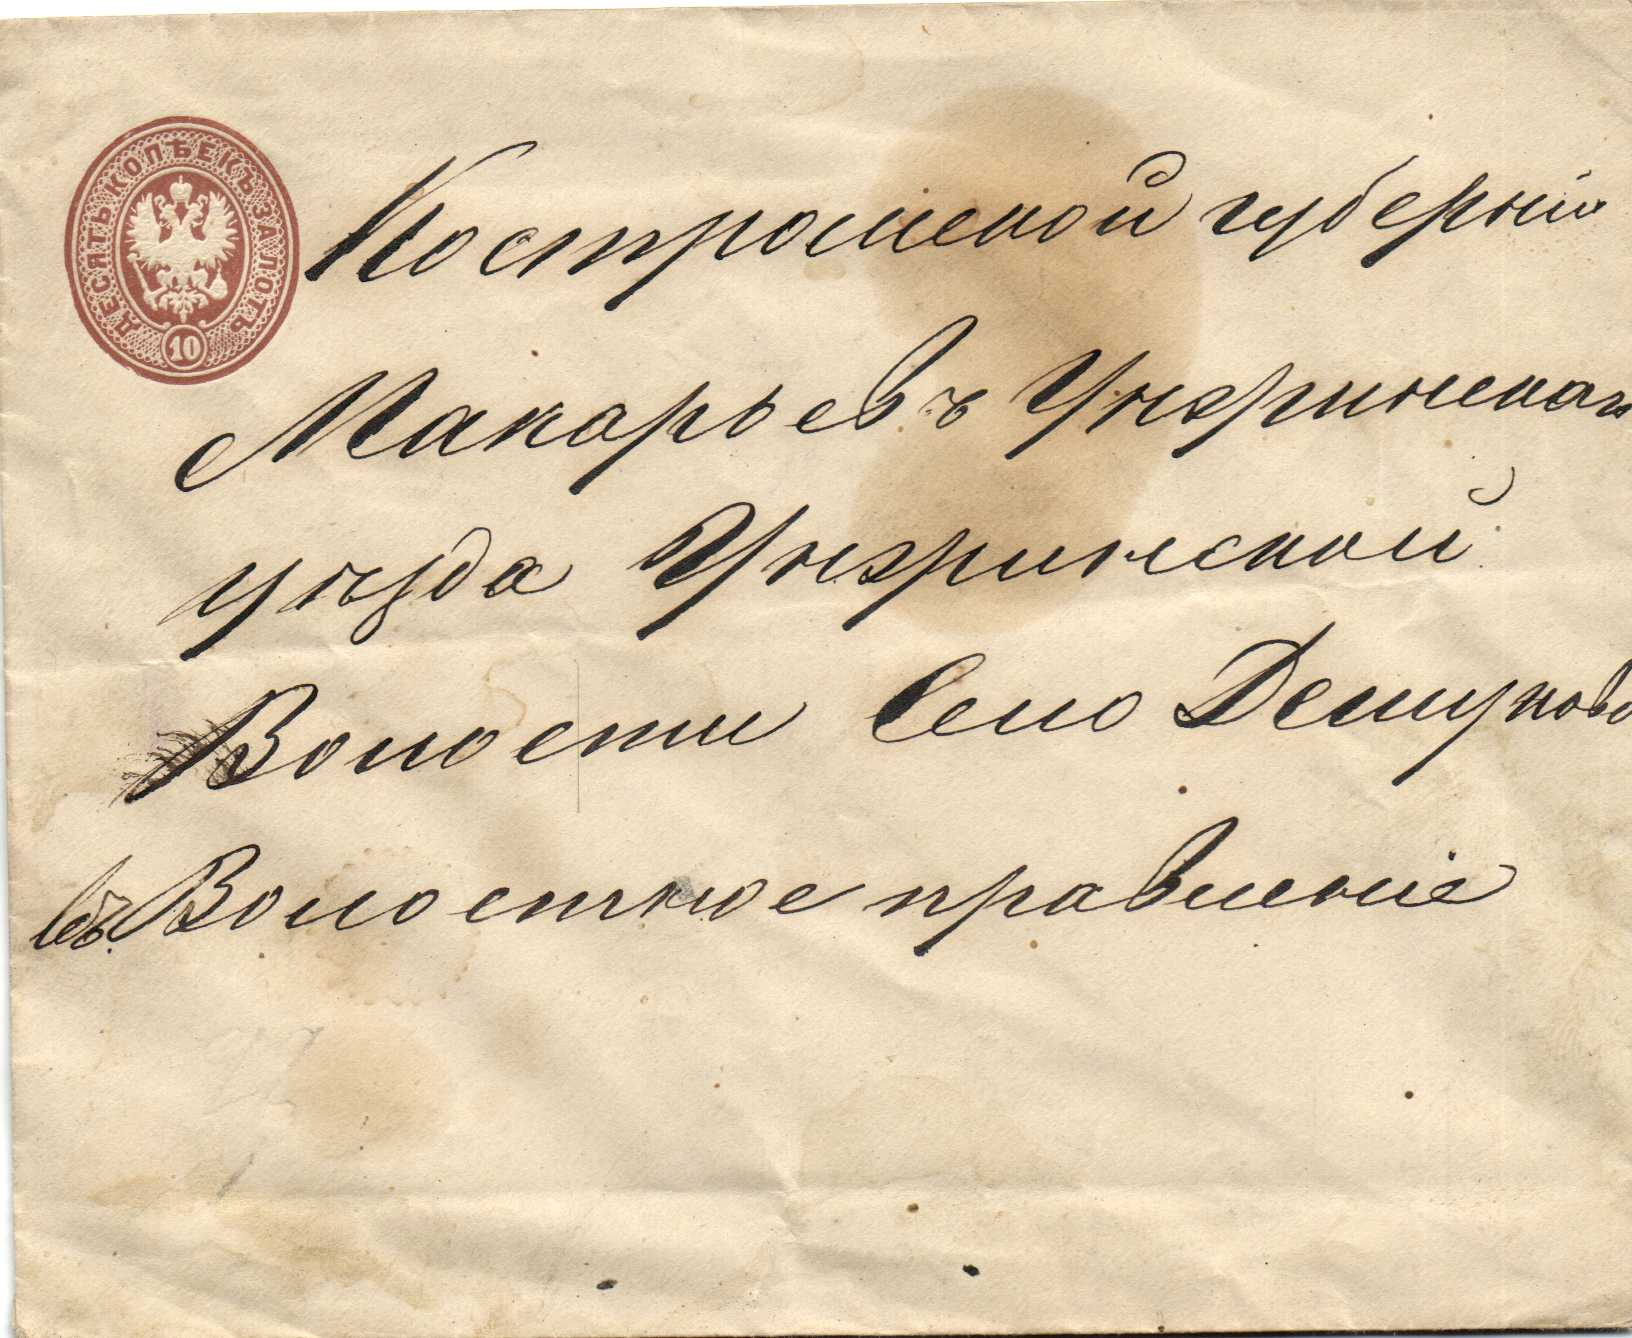 ДЕСЯТЬ КОПѢЕКЪ ЗА ЛОТЪ
10
Костромской губерніи
Макарьевъ Унжинскаго
уѣзда Унжинской
Волости Село Дешуково
въ Волостное правленіе